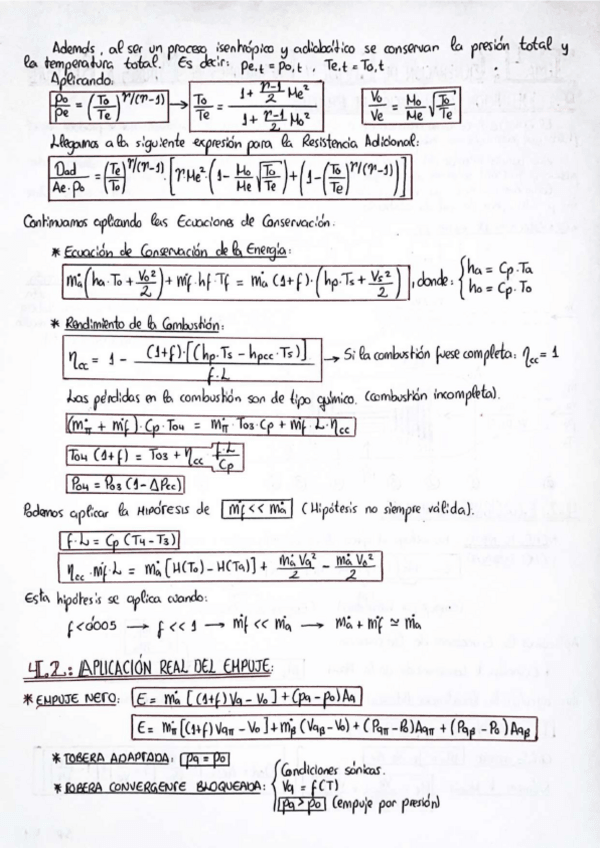 Además, al ser un proceso isentrópico y adiabático se conservan la presión total y
la temperatura total. Es decir: pe,t = po,t , Te,t = To,t
Aplicando:
po/pe = (To/Te)^γ/(γ-1) → To/Te = (1 + γ-1/2 Me²)/(1 + γ-1/2 Mo²)   Vo/Ve = Mo/Me √(To/Te)
Llegamos a la siguiente expresión para la Resistencia Adicional:
Dad/(Ae·po) = (Te/To)^γ/(γ-1) · [γMe²(1 - Mo/Me √(To/Te)) + (1 - (To/Te)^γ/(γ-1))]
Continuamos aplicando las Ecuaciones de Conservación.
* Ecuación de Conservación de la Energía:
ṁa(ha·To + Vo²/2) + ṁf·hf·Tf = ṁa(1+f)·(hp·Ts + Vs²/2), donde: { ha = Cp·Ta
ho = Cp·To
* Rendimiento de la Combustión:
ηcc = 1 - (1+f)·[(hp·Ts - hpcc·Ts)]/(f·L) → Si la combustión fuese completa: ηcc = 1
Las pérdidas en la combustión son de tipo químico. (combustión incompleta).
(ṁπ + ṁf)·Cp·To4 = ṁπ·To3·Cp + ṁf·L·ηcc
To4 (1+f) = To3 + ηcc f·L/Cp
Po4 = Po3 (1-ΔPcc)
Podemos aplicar la HIPÓTESIS de ṁf << ṁa (Hipótesis no siempre válida).
f·L = Cp (T4-T3)
ηcc·ṁf·L = ṁa [H(To) - H(Ta)] + ṁa Va²/2 - ṁa Vo²/2
Esta hipótesis se aplica cuando:
f<0'005 → f << 1 → ṁf << ṁa → ṁa + ṁf ≃ ṁa
4.2.: APLICACIÓN REAL DEL EMPUJE:
* EMPUJE NETO: E = ṁa [(1+f)Vq - Vo] + (pq - po)Aq
E = ṁπ[(1+f)Vqπ - Vo] + ṁβ (Vqβ - Vo) + (Pqπ - Po)Aqπ + (Pqβ - Po)Aqβ
* TOBERA ADAPTADA: pq = po
* TOBERA CONVERGENTE BLOQUEADA: { Condiciones sónicas.
Vq = f(T)
pq > po (empuje por presión)